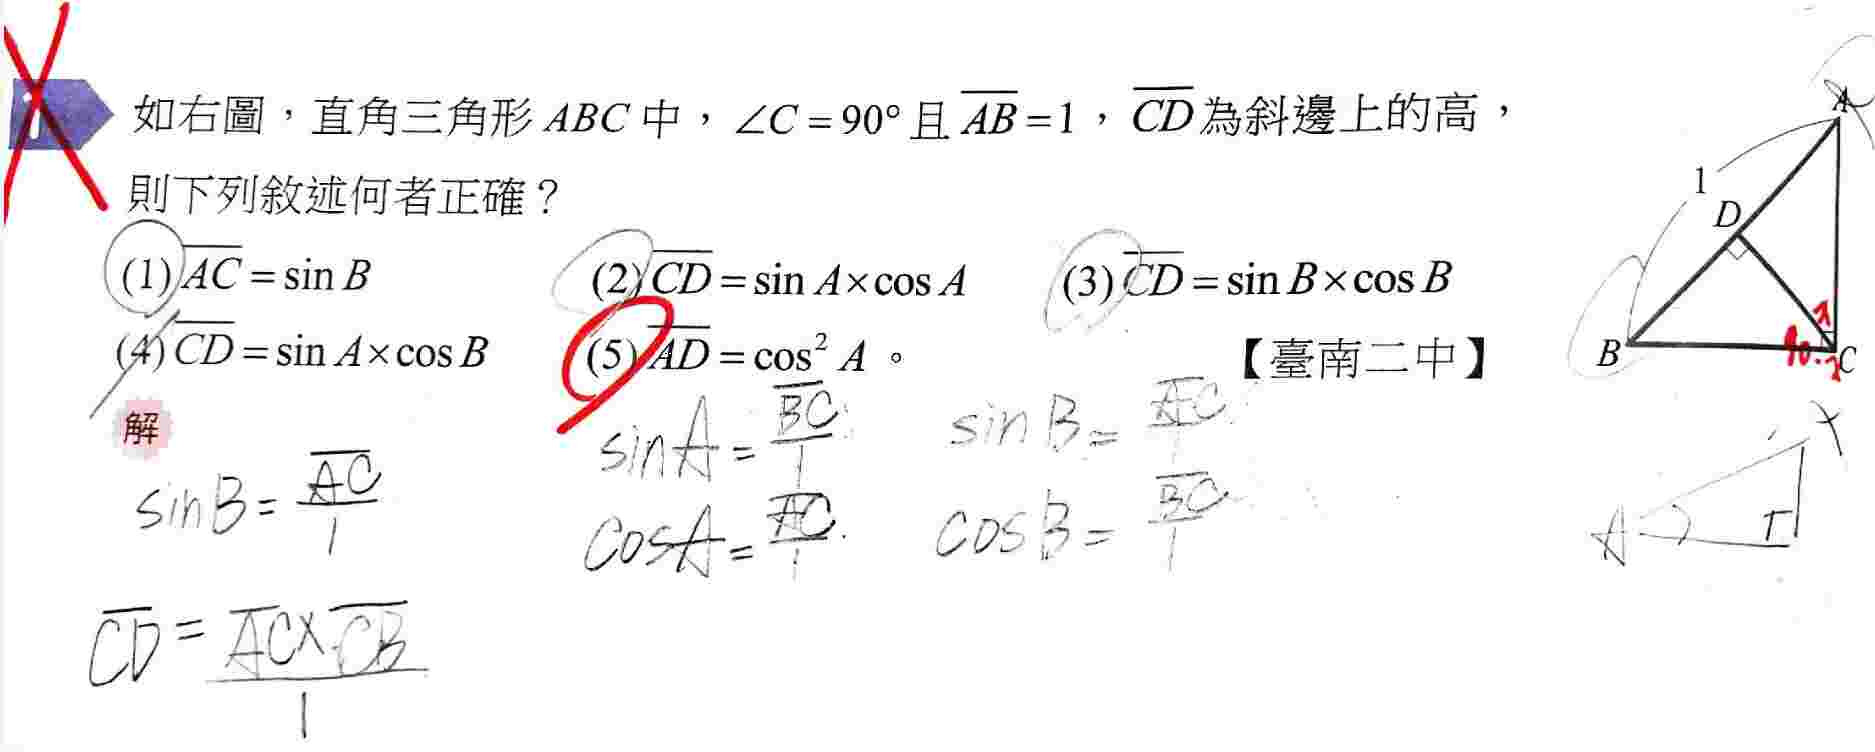 1
如右圖，直角三角形 ABC 中，∠C = 90° 且 \overline{AB} = 1，\overline{CD} 為斜邊上的高，
則下列敘述何者正確？
(1) \overline{AC} = sin B (2) \overline{CD} = sin A × cos A (3) \overline{CD} = sin B × cos B
(4) \overline{CD} = sin A × cos B (5) \overline{AD} = cos² A。 【臺南二中】
A
1
D
B
C
解
sin B = \overline{AC}/1
sin A = \overline{BC}/1
sin B = \overline{AC}/1
cos A = \overline{AC}/1
cos B = \overline{BC}/1
A
\overline{CD} = \overline{AC} × \overline{CB}/1